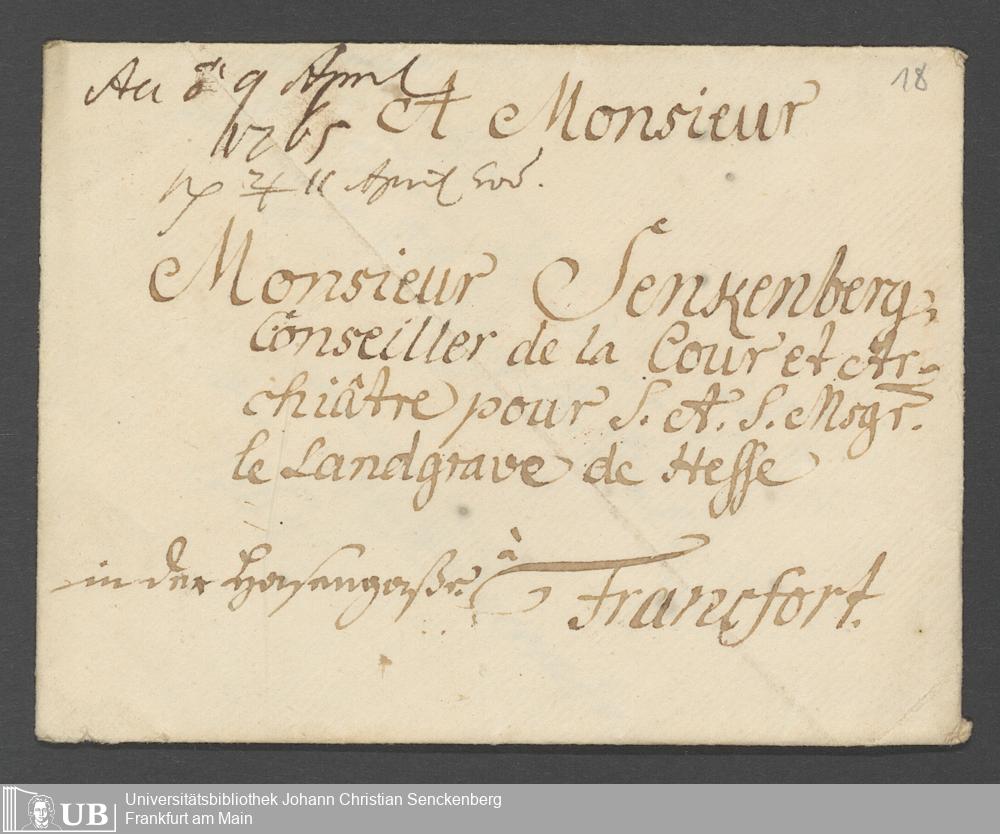 9 April
1765
18
A Monsieur
11 April
Monsieur Senkenberg,
Conseiller de la Cour et Ar-
chiâtre pour S. A. S. Msgr.
le Landgrave de Hesse
in der Hasengaße.
à
Francfort.
UB
Universitätsbibliothek Johann Christian Senckenberg
Frankfurt am Main